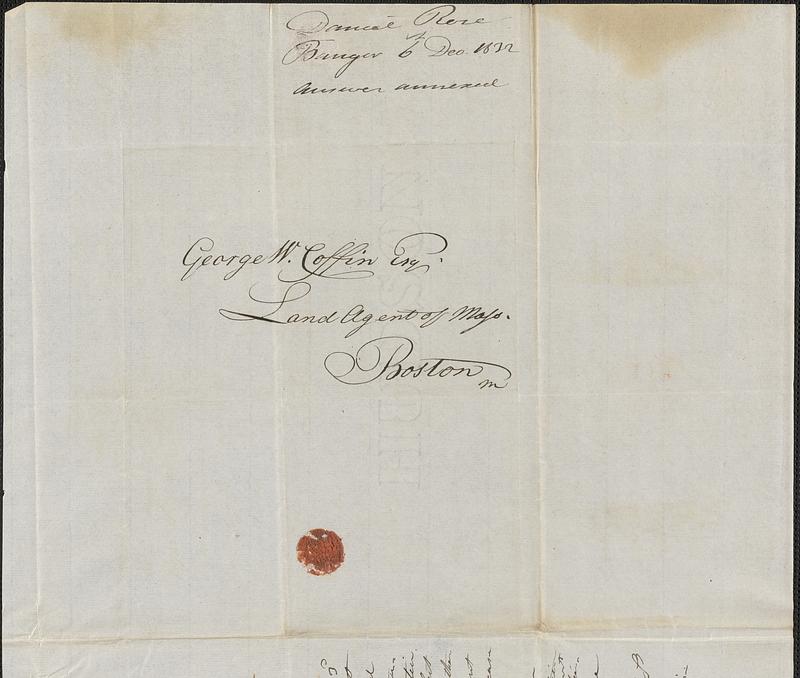 Daniel Rose
Bangor 6 Dec. 1832
Answer annexed
George W. Coffin Esq.
Land Agent of Mass.
Boston
m
HUDSON